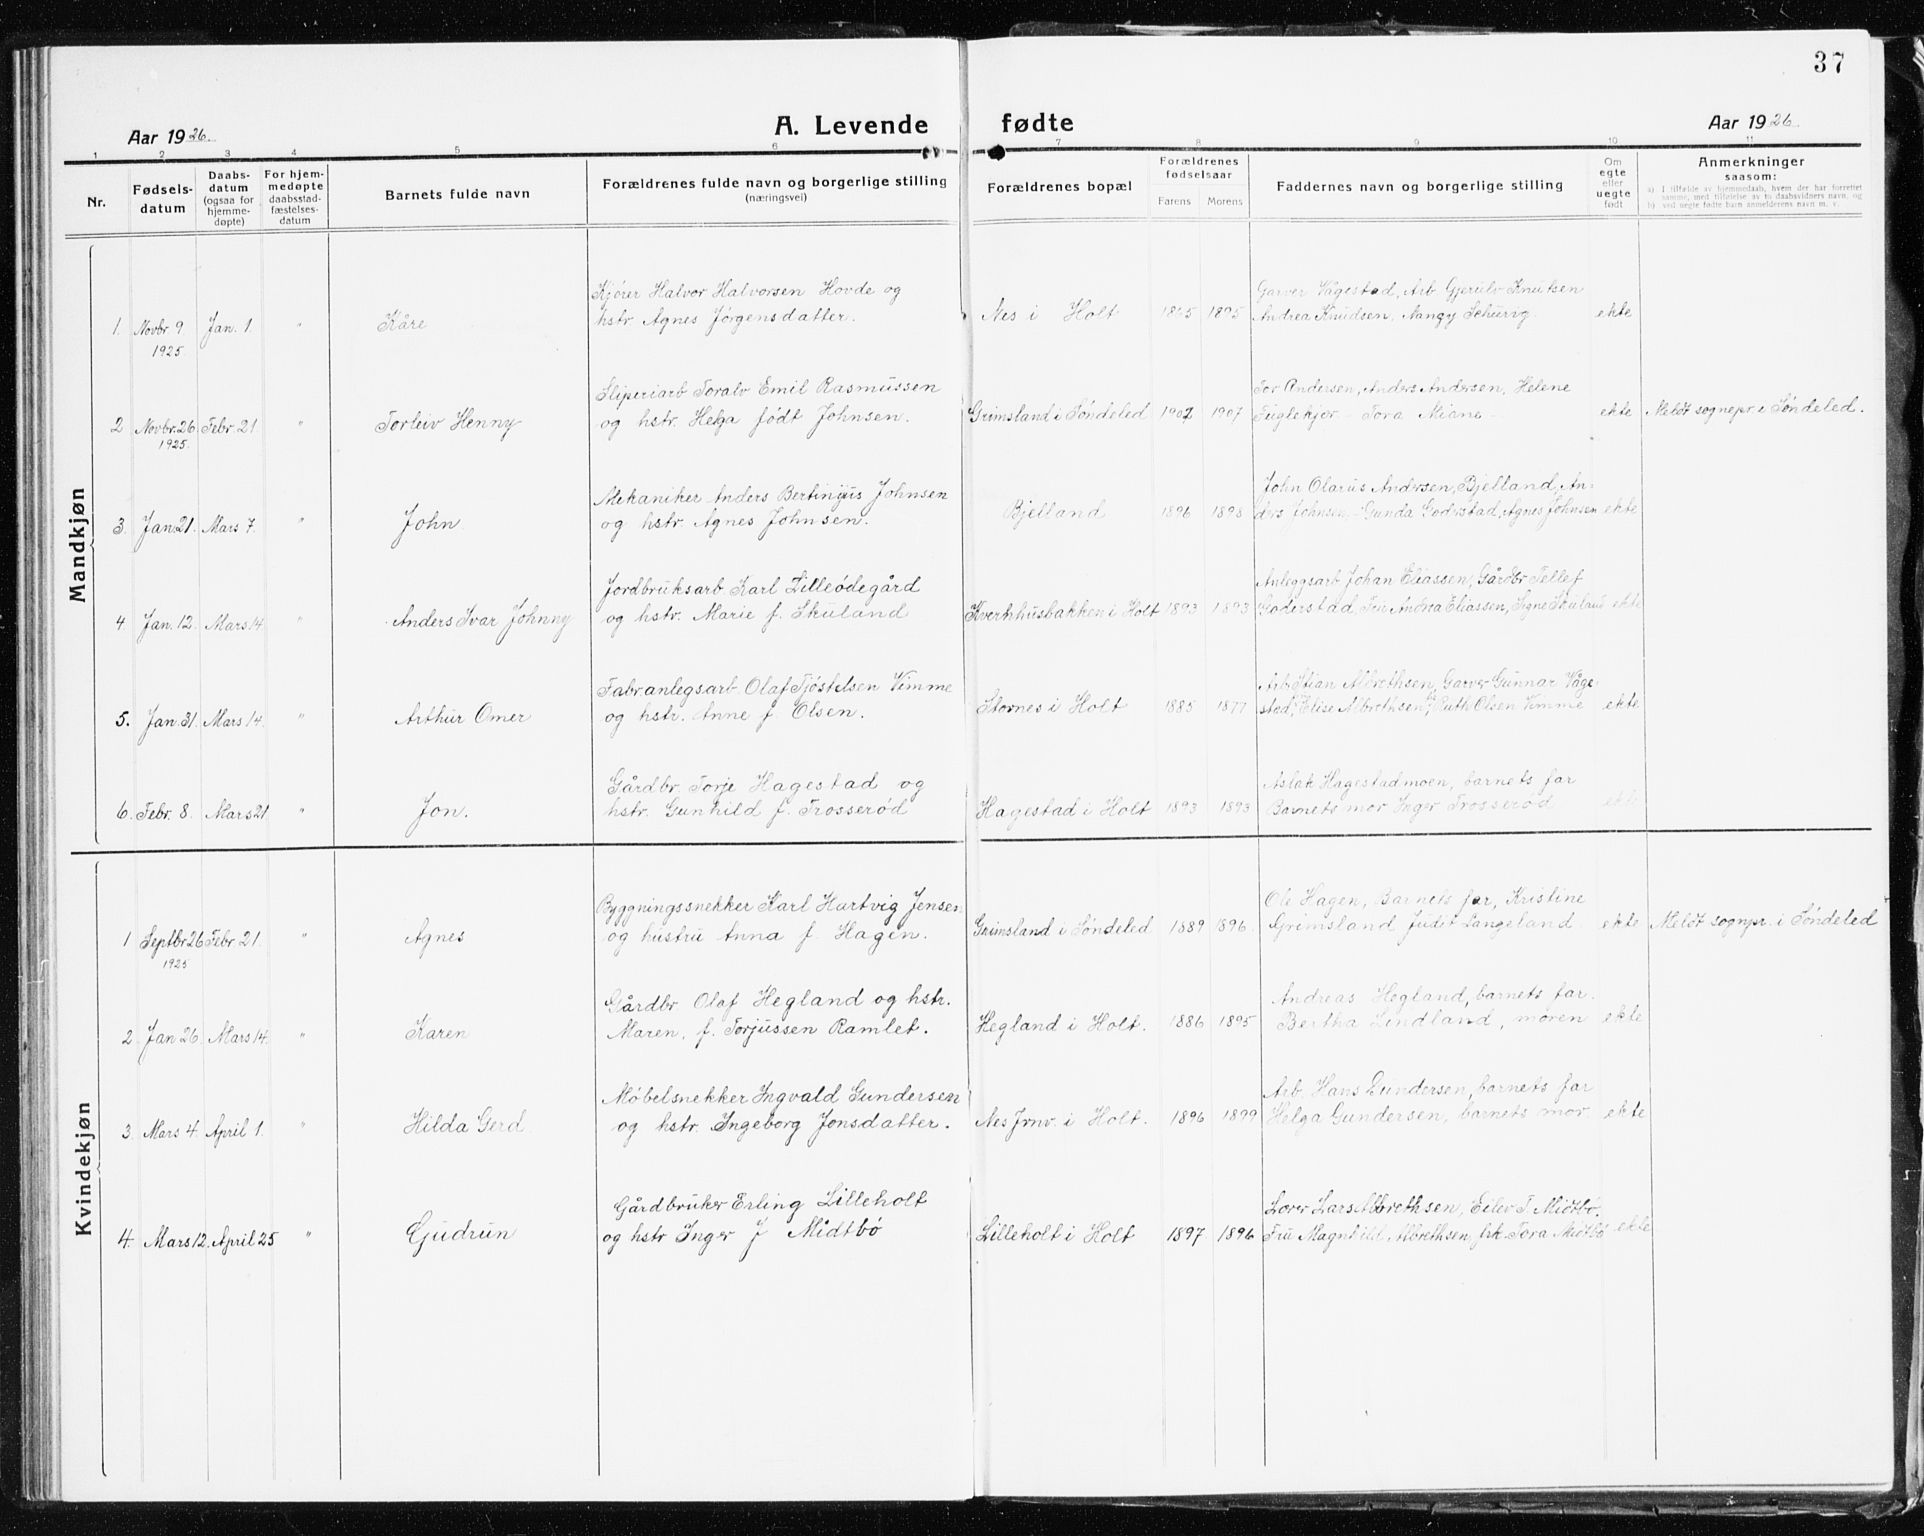 37
Aar 1926.
A. Levende fødte
Aar 1926.
1 2 3 4 5 6 7 8 9 10 11
Nr.
Fødsels-
datum
Daabs-
datum
(ogsaa for
hjemme-
døpte)
For hjem-
medøpte
daabsstad-
fæstelses-
datum
Barnets fulde navn
Forældrenes fulde navn og borgerlige stilling
(næringsvei)
Forældrenes bopæl
Forældrenes
fødselsaar
Farens Morens
Faddernes navn og borgerlige stilling
Om
egte
eller
uegte
født
Anmerkninger
saasom:
a) I tilfælde av hjemmedaab, hvem der har forrettet
samme, med tilføielse av to daabsvidners navn, og
b) ved uegte fødte barn anmelderens navn m. v.
Mandkjøn
Kjører Halvor Halvorsen Hovde og
1. Novbr 9. Jan. 1. " Kåre hstr Agnes Jørgensdatter.
1925.
Nes i Holt 1895
Garver Vågestad, Arb. Gjerulv Knutsen
Andrea Knudsen, Nangy Schurig. ekte
Sliperiarb Toralv Emil Rasmussen
2 Novbr. 26. Febr. 21 " Torleiv Henny og hstr. Helga født Johnsen.
1925.
Grimsland i Søndeled 1907 1907
Tor Andersen, Anders Andersen, Helene
Tora ekte Meldt sognepr i Søndeled.
Mekaniker Anders Bertinius Johnsen
3. Jan 21. Mars 7. " John. og hstr. Agnes Johnsen.
Bjelland 1896 1898
John Olarus Andersen, Bjelland, An-
ders Johnsen - Gunda Goderstad, Agnes Johnsen ekte
Jordbruksarb. Karl Lilleødegård
4 Jan. 12. Mars 14. " Anders Ivar Johnny og hstr. Marie f. Skuland
Kvernhusbakken i Holt 1893 1893
Anleggsarb Johan Eliassen, Gårdbr Tellef
Goderstad, Fru Andrea Eliassen, Signe Skuland ekte
Fabr.anlegsarb. Olaf Tjøstelsen Vimme
5. Jan. 31. Mars 14. " Arthur Omer og hstr. Anne f Olsen.
Stornes i Holt 1885 1877
Arb. Stian Albrethsen, Garver Gunnar Våge-
stad, Elise Albrethsen, Ruth Olsen Vimme ekte
Gårdbr. Torje Hagestad og
6. Febr. 8. Mars 21 " Jon. hstr. Gunhild f. Trosserød
Hagestad i Holt 1893 1893
Aslak Hagestadmoen, barnets far
Barnets mor Inger Trosserød
Kvindekjøn
Byggningssnekker Karl Hartvig Jensen
1 Septbr 26 Febr. 21. " Agnes og hustru Anna f. Hagen.
1925
Grimsland i Søndeled 1889 1896.
Ole Hagen, Barnets far, Kristine
Grimsland Judit Langeland. ekte Meldt sognpr. i Søndeled
Gårdbr. Olaf Hegland og hstr.
2. Jan 26. Mars 14. " Karen Maren, f. Torjussen Ramlet.
Hegland i Holt. 1886 1895
Andreas Hegland, barnets far.
Bertha Lindland, moren ekte
Møbelsnekker Ingvald Gundersen
3. Mars 4. April 1. " Hilda Gerd. og hstr. Ingeborg Jonsdatter.
Nes Jrnv. i Holt. 1896 1899
Arb. Hans Gundersen, barnets far
Helga Gundersen, barnets mor. ekte
Gårdbruker Erling Lilleholt
4. Mars 12. April 25 " Gudrun og hstr Inger f Midtbø
Lilleholt i Holt 1897 1896
Lærer Lars Albrethsen, Eilev T. Midtbø.
Fru Magnhild Albrethsen, frk. Tora Midtbø ekte